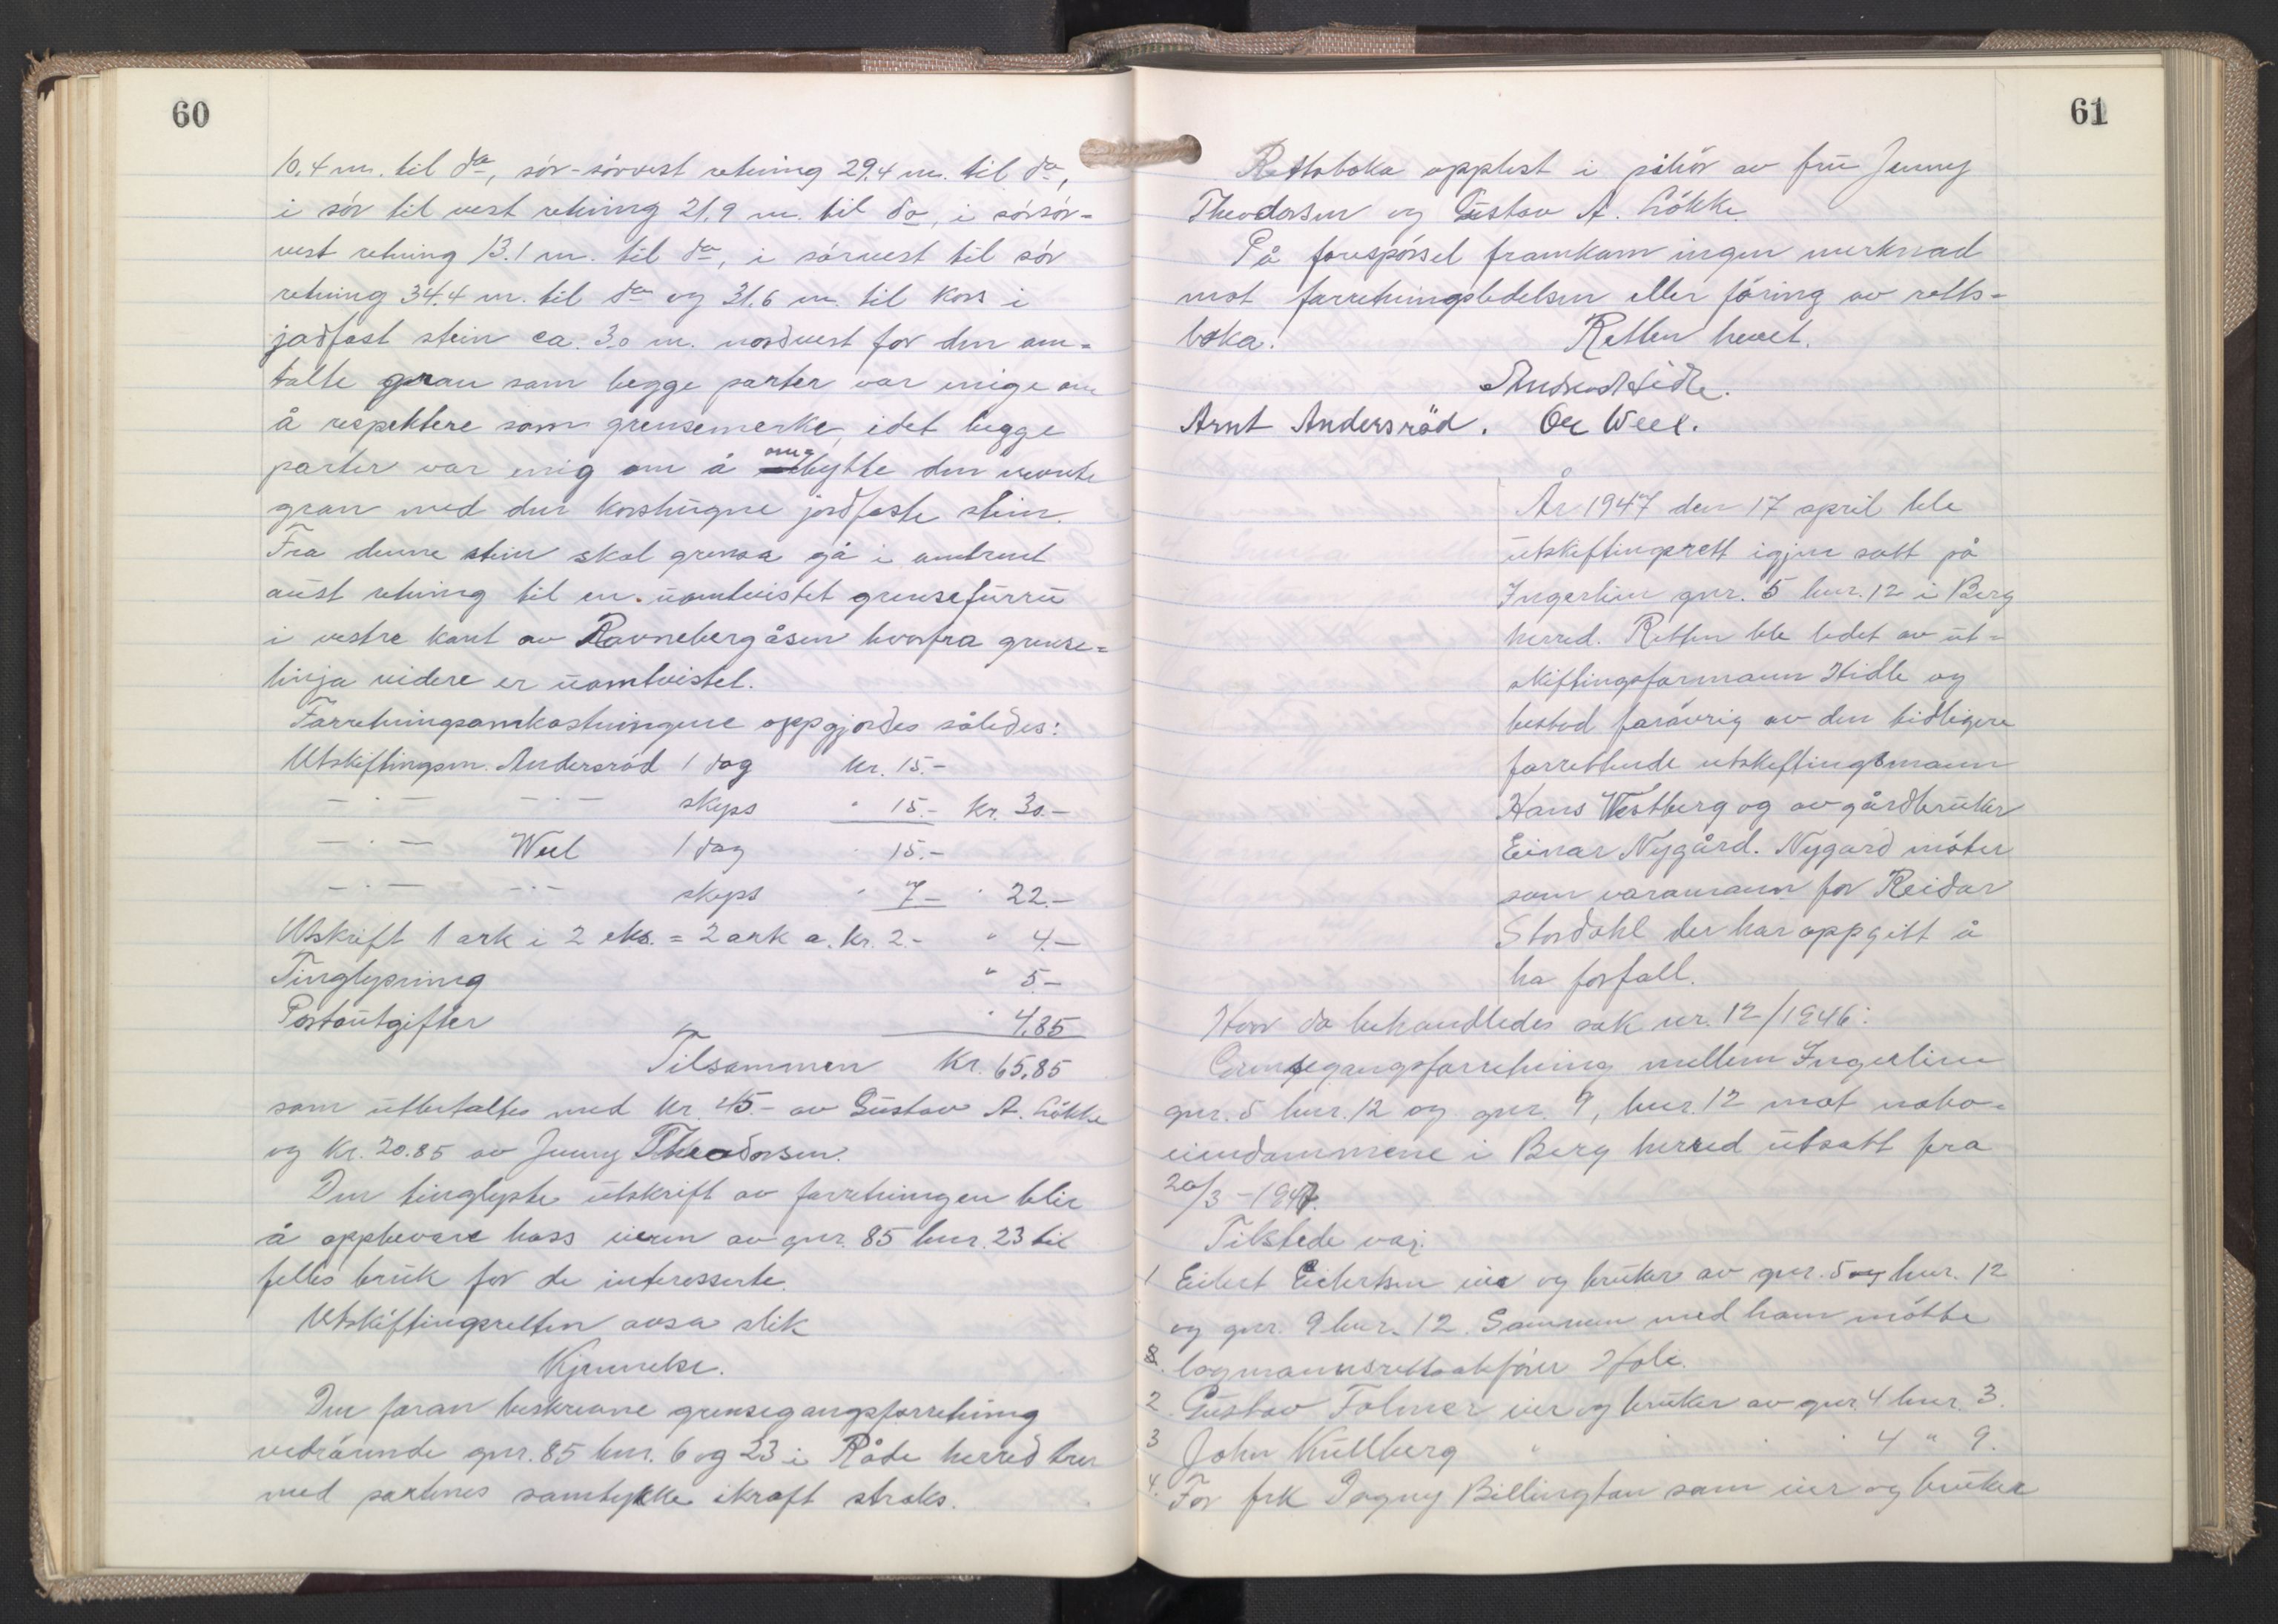 60
10.4 m. til do, sör-sörvest retning 29.4 m. til do,
i sör til vest retning 21.9 m. til do, i sörsör-
vest retning 13.1 m. til do, i sörvest til sör
retning 34.4 m. til do og 31.6 m. til kors i
jordfast stein ca. 3.0 m. nordvest for den om-
talte gran som begge parter var enige om
å respektere som grensemerke, idet begge
parter var enig om å ombytte den nevnte
gran med den korshugne jordfaste stein.
Fra denne stein skal grensa gå i omtrent
aust retning til en uomtvistet grensefurru
i vestre kant av Ravnebergåsen hvorfra grense-
linja videre er uomtvistet.
Forretningsomkostningene oppgjordes således:
Utskiftingsm. Andersröd 1 dag kr. 15.-
— " — — " — skyss " 15.- kr. 30.-
— " — Weel 1 dag " 15.-
— " — — " — skyss " 7- " 22.-
Utskrift 1 ark i 2 eks. = 2 ark a. kr. 2.- " 4.-
Tinglysning " 5.-
Portoutgifter " 4.85
Tilsammen kr. 65.85
som utbetaltes med kr. 45.- av Gustav A. Lökke
og kr. 20.85 av Jenny Theodorsen.
Den tinglyste utskrift av forretningen blir
å oppbevare hoss eieren av gnr. 85 bnr. 23 til
felles bruk for de interesserte.
Utskiftingsretten avsa slik
Kjennelse.
Den foran beskrevne grensegangsforretning
vedrörende gnr. 85 bnr. 6 og 23 i Råde herred trer
med partenes samtykke ikraft straks.
61
Rettsboka opplest i påhör av fru Jenny
Theodorsen og Gustav A. Lökke.
På forespörsel framkom ingen merknad
mot forretningsledelsen eller föring av retts-
boka. Retten hevet.
Andreas Hidle.
Arnt Andersröd. Ole Weel.
År 1947 den 17 april ble
utskiftingsrett igjen satt på
Ingerlien gnr. 5 bnr. 12 i Berg
herred. Retten ble ledet av ut-
skiftingsformann Hidle og
bestod forövrig av den tidligere
forrettende utskiftingsmann
Hans Westberg og av gårdbruker
Einar Nygård. Nygård möter
som varamann for Reidar
Stordahl der har oppgitt å
ha forfall.
Hvor da behandledes sak nr. 12/1946:
Grensegangsforretning mellem Ingerlien
gnr. 5 bnr. 12 og gnr. 9, bnr. 12 mot nabo-
eiendommene i Berg herred utsatt fra
20/3-1947.
Tilstede var:
1 Eilert Eilertsen eier og bruker av gnr. 5 bnr. 12
og gnr. 9 bnr. 12. Sammen med ham mötte
lagmannsrettssakförer Holi.
2 Gustav Folmer eier og bruker av gnr. 4 bnr. 3.
3 John Kullberg " " " " 4 " 9.
4. For frk Dagny Billington som eier og bruker